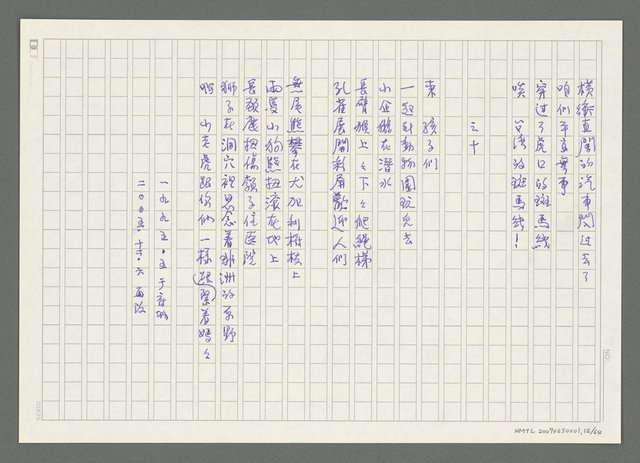 橫衝直闖的汽車閃過去了
咱們平直無事
穿過了虎口的斑馬線
唉 台灣的斑馬線！
之十
來 孩子們
一起到動物園玩兒去
小企鵝在潛水
長臂猴上上下下爬繩梯
孔雀展開彩屏歡迎人們
無尾熊攀在尤加利樹枝上
兩隻小狗熊扭滾在地上
長頸鹿扭傷頸子住醫院
獅子在洞穴裡思念著非洲的原野
小老虎跟你們一樣跟緊著媽媽
一九九五．五于
二００五．十二．六 再改
NO:
20X25
NMTL 20070250001,12/64